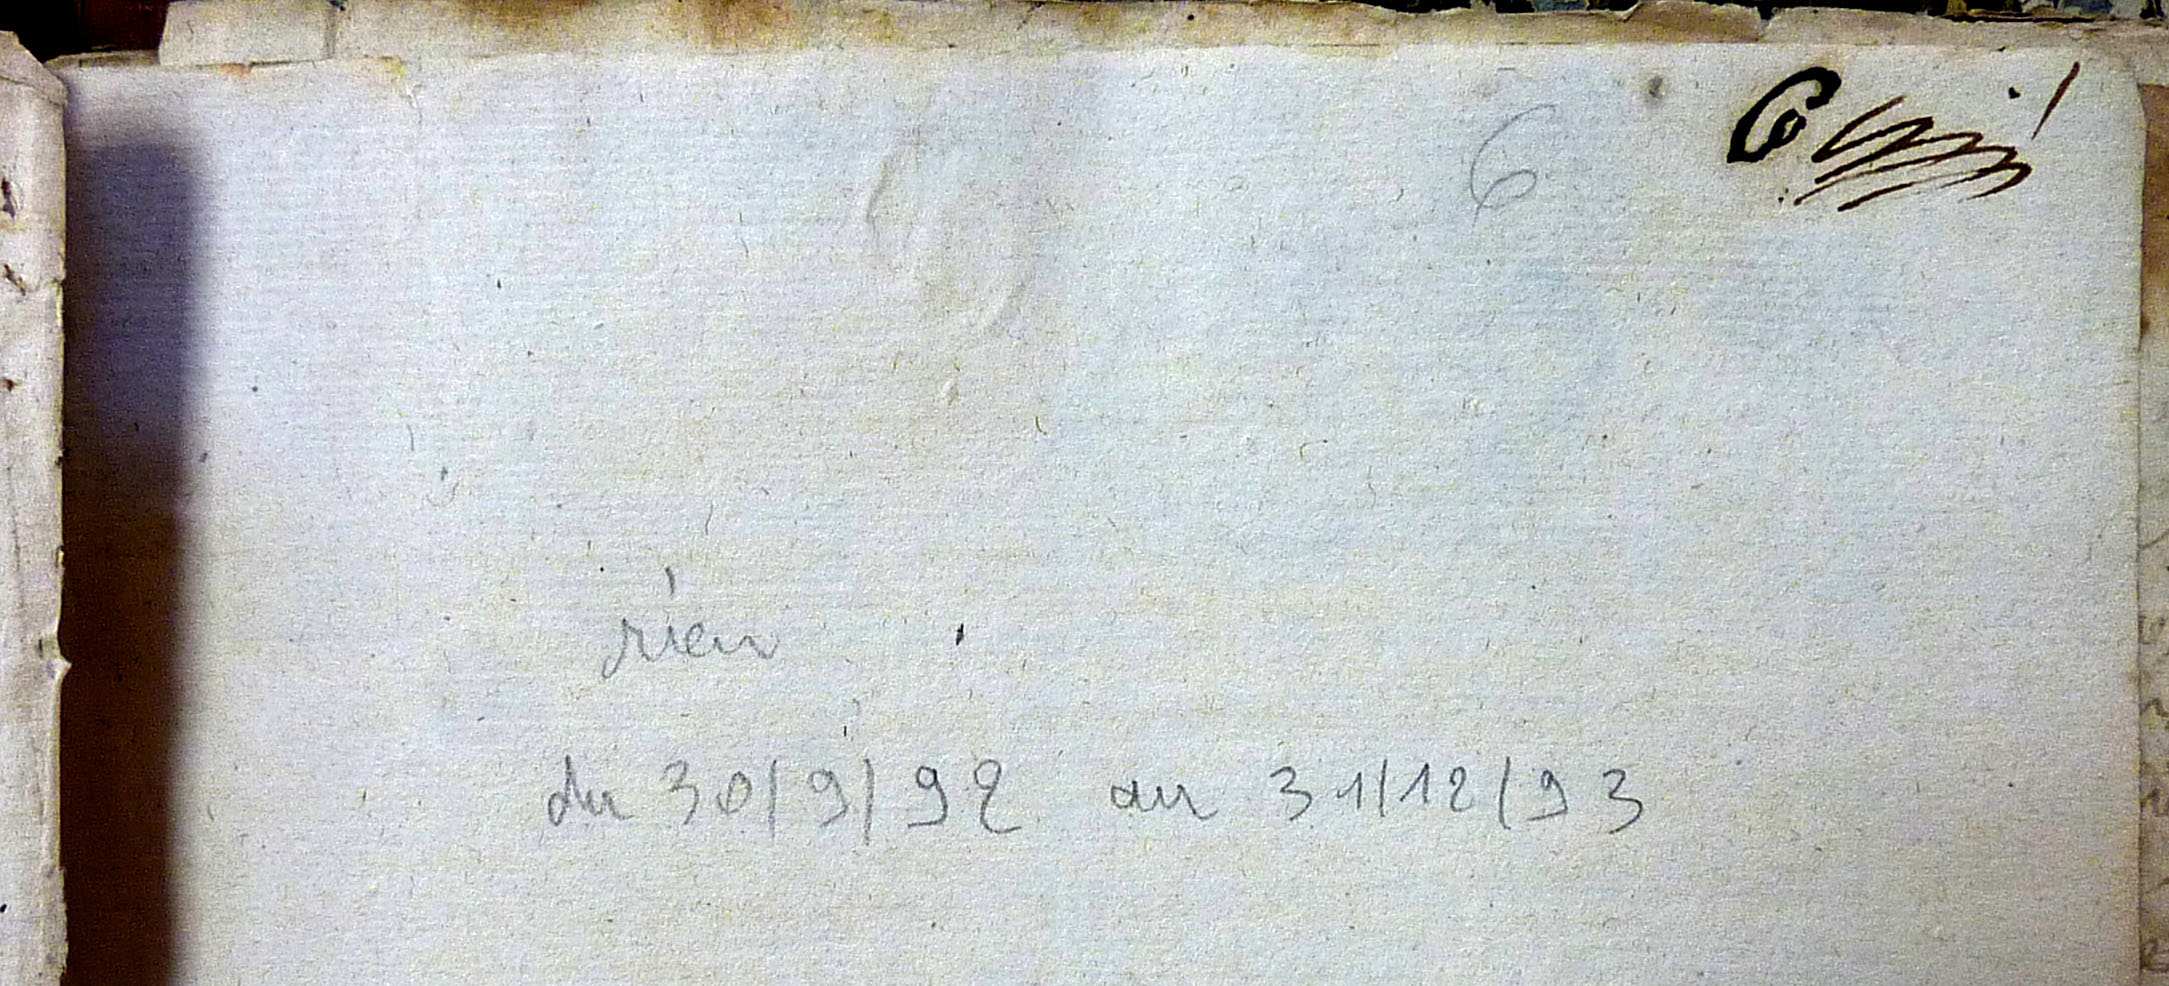 6 6
rien
du 30/9/92 au 31/12/93